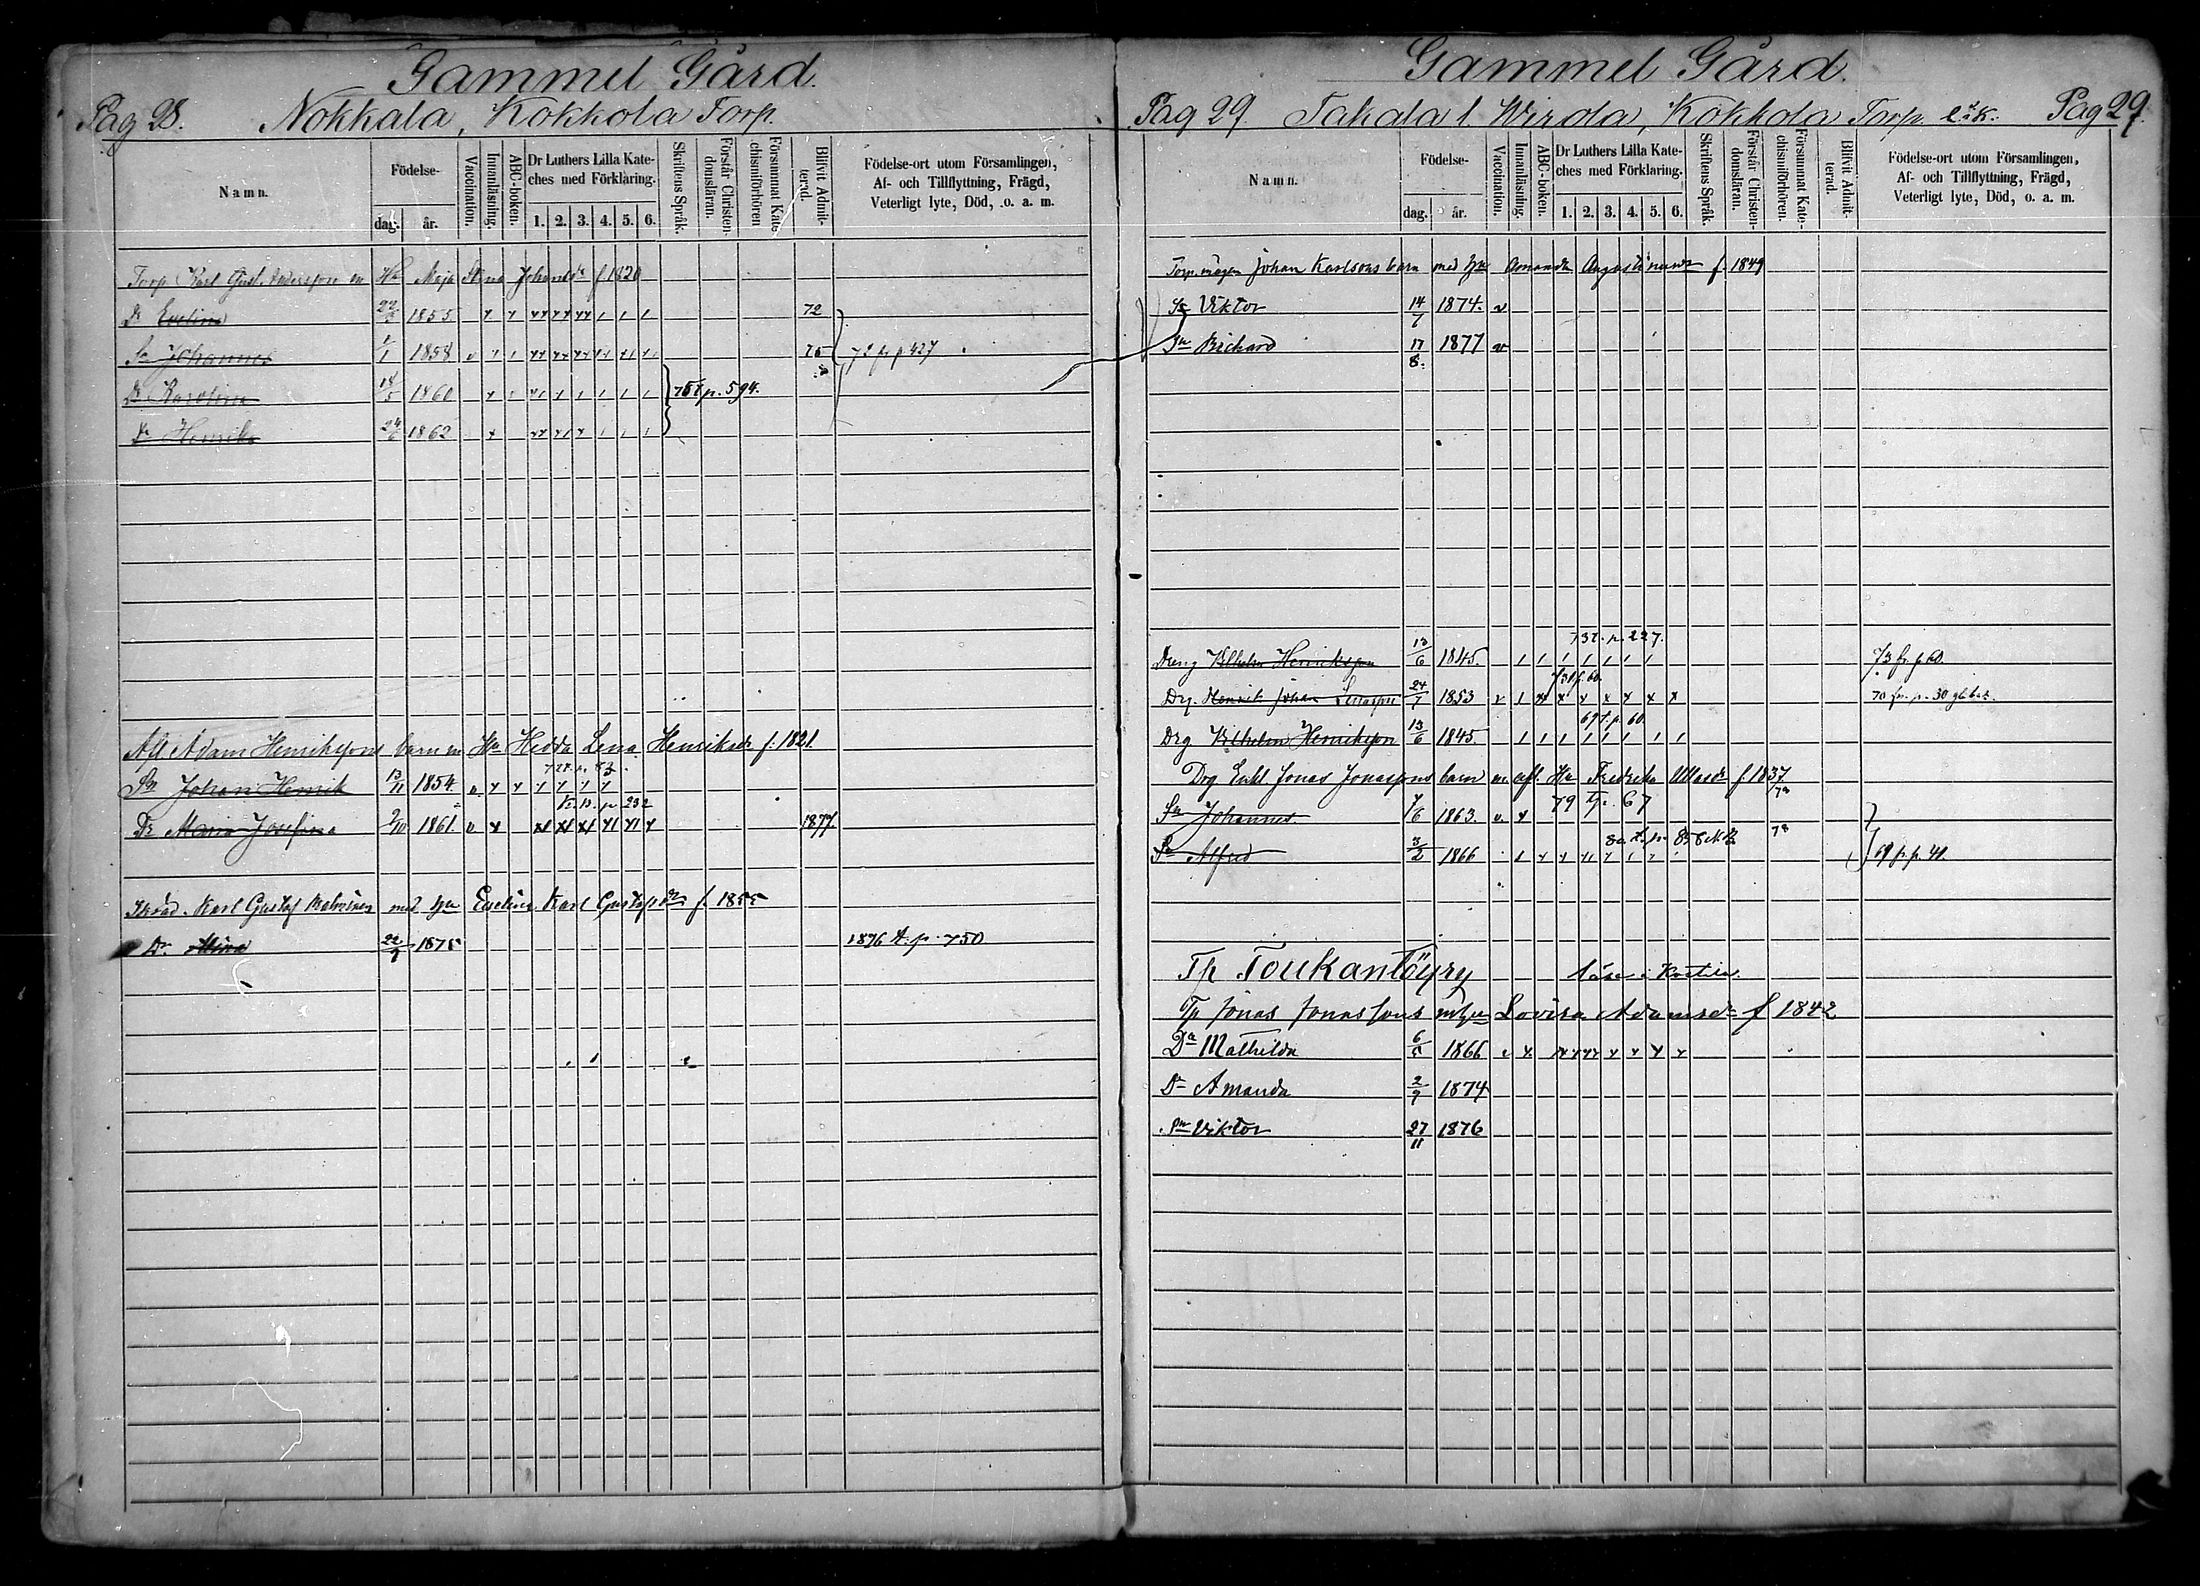 Gammel Gård.
Pag 28. Nokkala, Kokkola Torp.
Namn.
Födelse-
dag. år.
Vaccination.
Innanläsning.
ABC-boken.
Dr Luthers Lilla Kate-
ches med Förklaring.
1. 2. 3. 4. 5. 6.
Skriftens Språk.
Förstår Christen-
domsläran.
Försummat Kate-
chismiförhören
Blifvit Admit-
terad.
Födelse-ort utom Församlingen,
Af- och Tillflyttning, Frägd,
Veterligt lyte, Död, o. a. m.
Torp. Karl Gust. Andersson m Hu Maja Stina Johansdr f. 1820
Dr Evelina 1855. 72
Sn Johannes 1/1 1858 75 73 fr p 427
Dr Karolina 18/5 1860 75 t p. 594.
Dr Henrika 1862
Afl. Adam Henrikssons barn m Hu Hedda Lena Henriksdr f. 1821.
Sn Johan Henrik 13/11 1854 v
Dr Maria Josefina 2/10 1861. v p 232 1877.
Karl Gustaf med hu Evelina Karl Gustafsdr f. 1855
Dr 22/9 1875 1876 t. p. 750
Gammel Gård.
Pag 29 Takala l. Wirola, Kokkola Torp. Pag 29.
Namn.
Födelse-
dag. år.
Vaccination.
Innanläsning.
ABC-boken.
Dr Luthers Lilla Kate-
ches med Förklaring.
1. 2. 3. 4. 5. 6.
Skriftens Språk.
Förstår Christen-
domsläran.
Försummat Kate-
chismiförhören.
Blifvit Admit-
terad.
Födelse-ort utom Församlingen,
Af- och Tillflyttning, Frägd,
Veterligt lyte, Död, o. a. m.
Torp.mågen Johan Karlssons barn med hu Amanda f. 1849
Sn Viktor 14/7 1874. v
Sn Richard 17/8. 1877 v
73 t. p. 227.
Dreng Vilhelm Henriksson 13/6 1845. 73 fr. p 60.
73 t p. 60.
Drg. Henrik Johan 24/7 1853 v 70 fr. p. 30
69 t. p. 60.
Drg Vilhelm Henriksson 13/6 1845.
Drg Enkl Jonas Jonassons barn m afl. Hu Fredrika f. 1837
Sn Johannes 7/6 1863. v 79 t. p. 67
Sn Alfred 3/2 1866 69 fr p. 41.
Tp Toukantöyry
Tp Jonas Jonassons m hu Lovisa Adamsdr f 1842
Dr Mathilda 6/5 1866
Dr Amanda 2/9 1874
Sn Viktor 27/11 1876